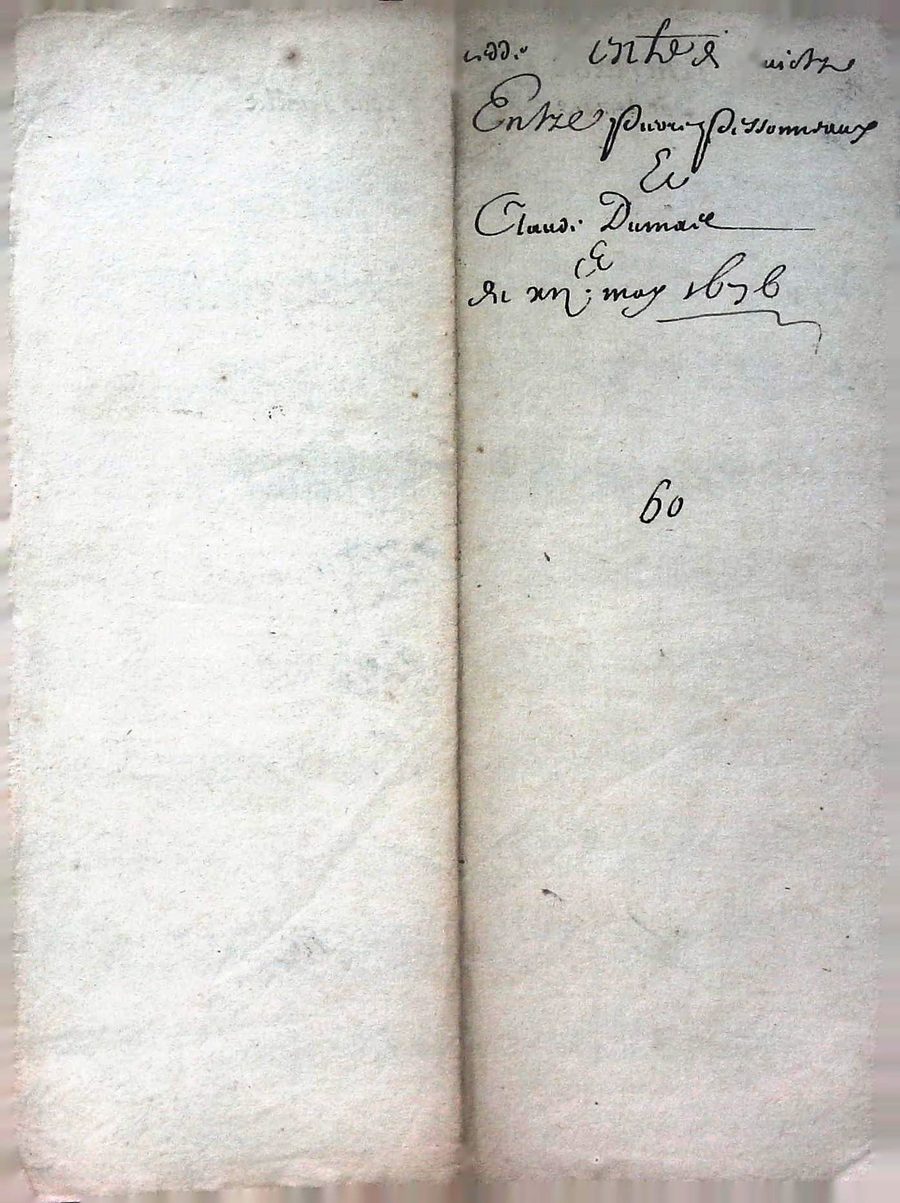 Entre Pierre Pissonneaux
Et
Claude Dumas
Du xii.e may 1676
60